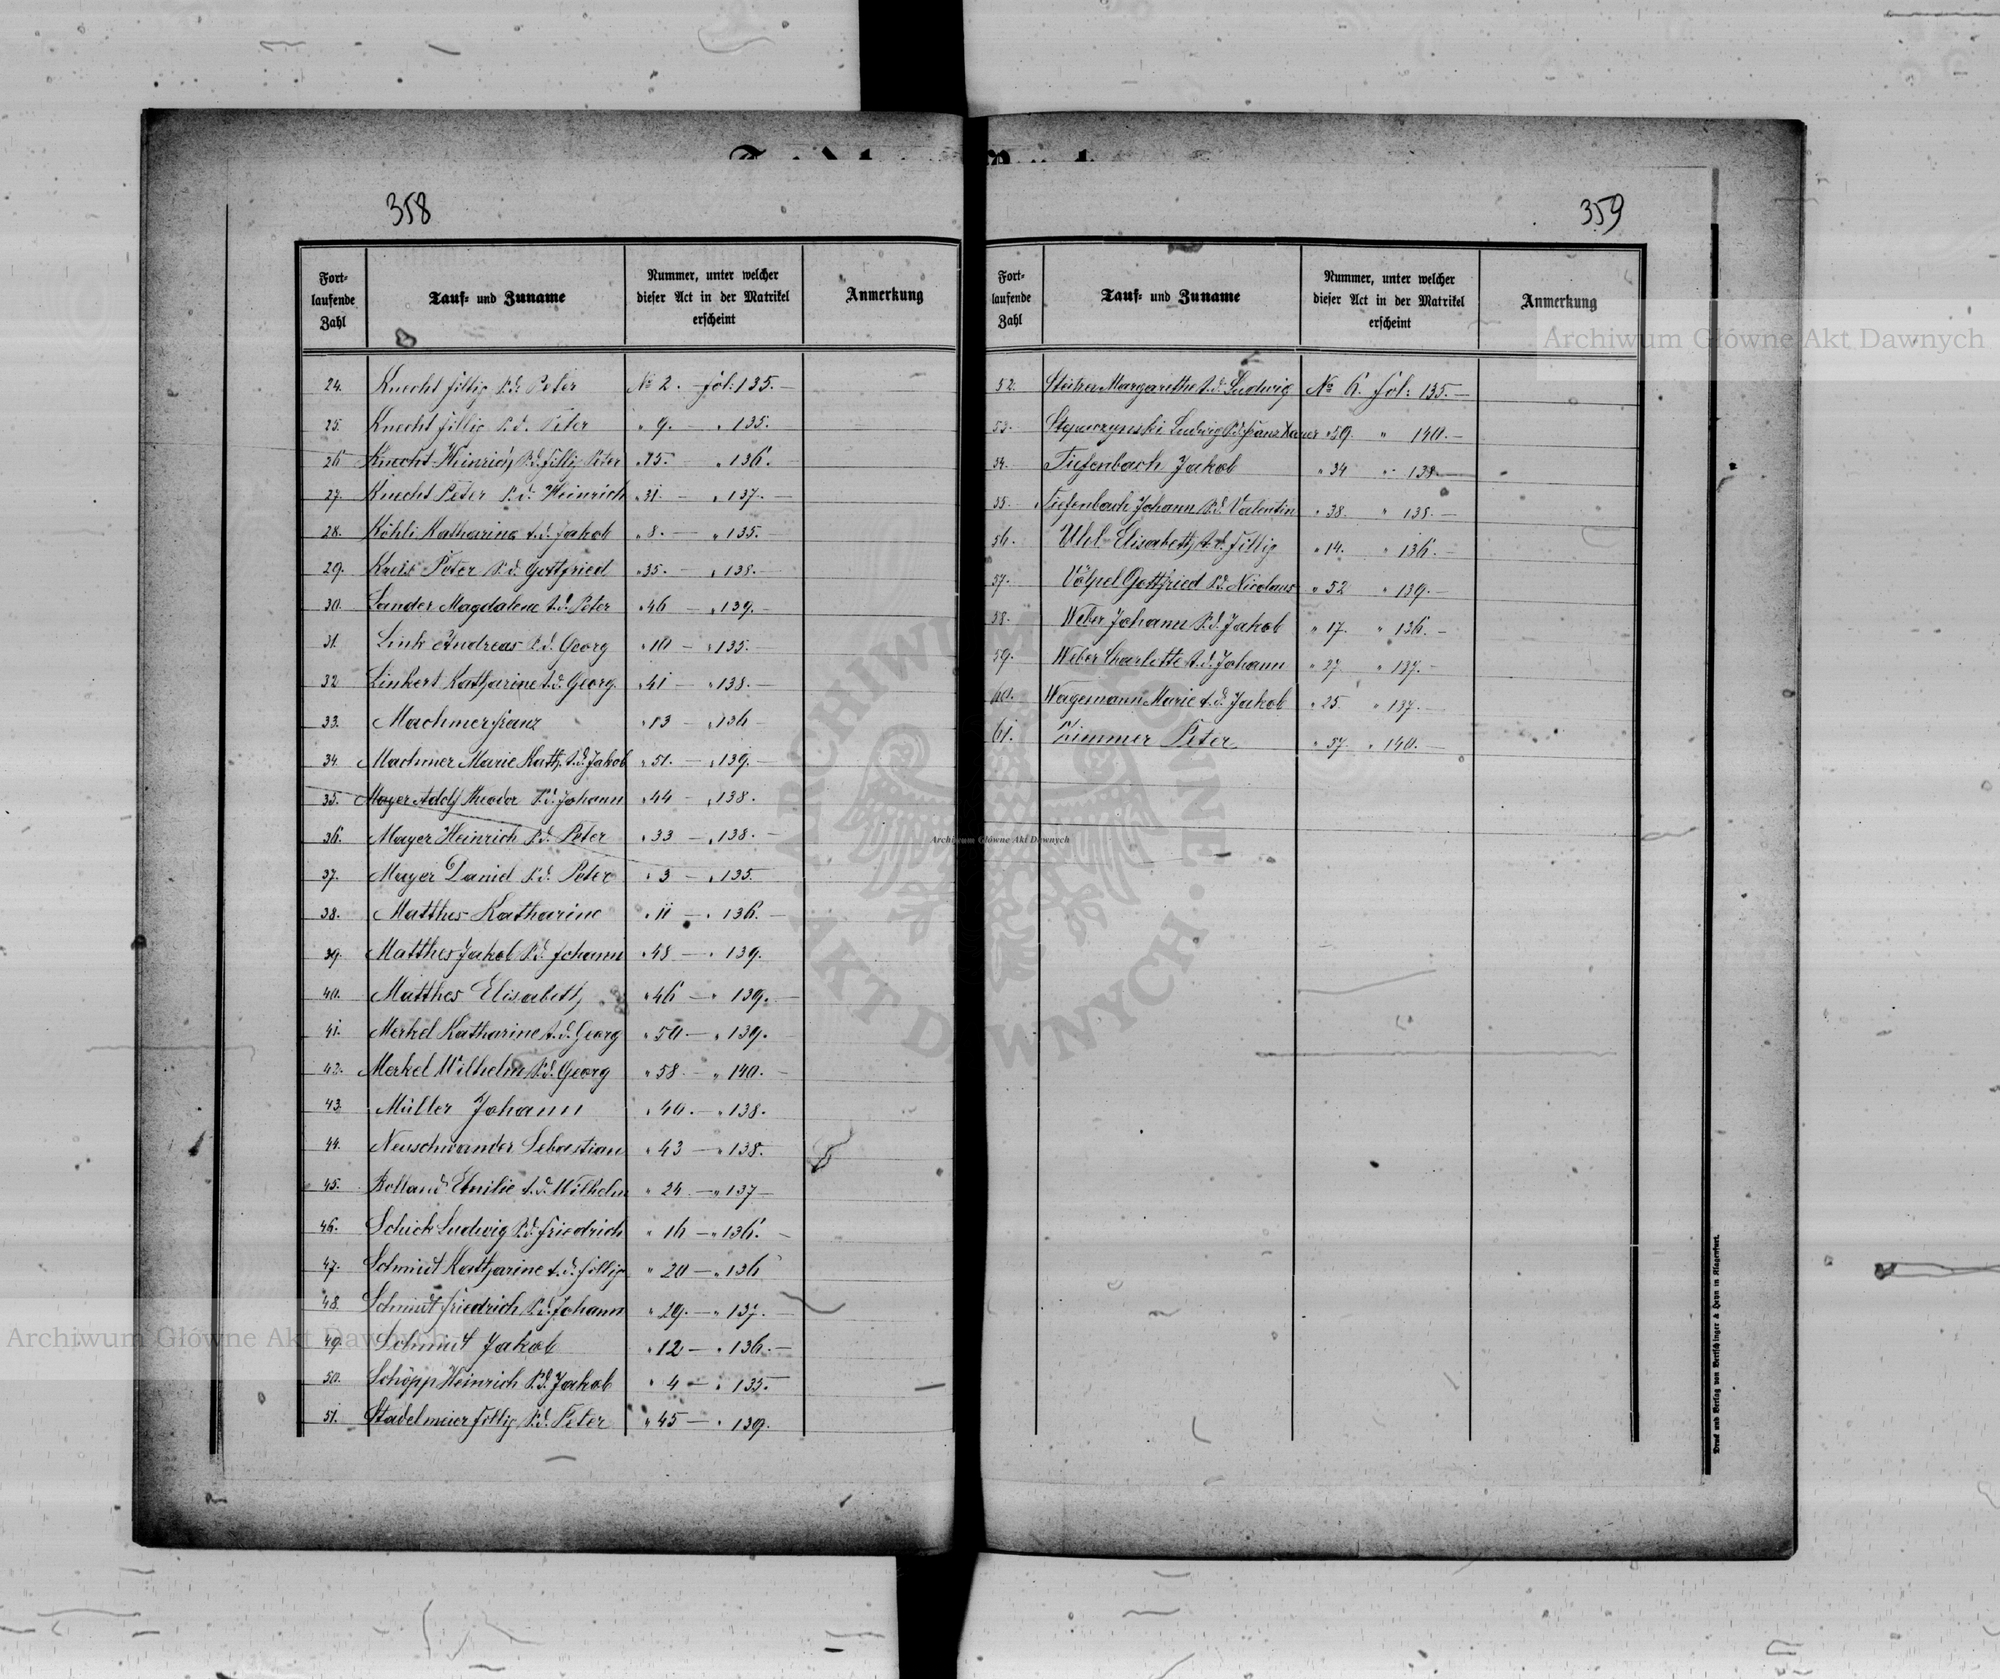 358
Fort-laufende Zahl | Tauf- und Zuname | Nummer, unter welcher dieser Act in der Matrikel erscheint | Anmerkung
24. Knecht Fillip S.d. Peter № 2. — fol: 135. —
25. Knecht Fillip S.d. Peter " 9. — " 135.
26 Knecht Heinrich S.d. Fillip Peter " 15. " 136.
27. Knecht Peter S.d. Heinrich " 31. — " 137. —
28. Köhli Katharina t.d. Jakob " 8. — " 135. —
29. Kreis Peter S.d. Gottfried " 35. — " 138. —
30. Sander Magdalene t.d. Peter " 46 — " 139. —
31. Link Andreas S.d. Georg " 10 — " 135. —
32 Linkert Katharine t.d. Georg " 41 — " 138. —
33. Machmer Franz " 13 — " 136 —
34. Machmer Marie Kath. t.d. Jakob " 51. — " 139. —
35. Mayer Adolf Theodor S.d. Johann " 44 — " 138.
36. Mayer Heinrich S.d. Peter " 33 — " 138. —
37. Mayer Daniel S.d. Peter " 3 — " 135.
38. Matthes Katharine " 11 — " 136. —
39. Matthes Jakob S.d. Johann " 48 — " 139.
40. Matthes Elisabeth " 46 — " 139. —
41. Merkel Katharine t.d. Georg " 50 — " 139.
42. Merkel Wilhelm S.d. Georg " 58 — " 140. —
43. Müller Johann " 40. — " 138.
44. Neuschwander Sebastian " 43 — " 138.
45. Rolland Emilie t.d. Wilhelm " 24 — " 137 —
46. Schick Ludwig S.d. Friedrich " 16 — " 136. —
47. Schmidt Katharine t.d. Fillip " 20 — " 136
48. Schmidt Friedrich S.d. Johann " 29. — " 137. —
49. Schmidt Jakob " 12 — " 136. —
50. Schöpp Heinrich S.d. Jakob " 4 — " 135.
51. Stadelmeier Fillip S.d. Peter " 45 — " 139.
359
Fort-laufende Zahl | Tauf- und Zuname | Nummer, unter welcher dieser Act in der Matrikel erscheint | Anmerkung
52. Margarethe t.d. Ludwig № 6. fol: 135. —
53. Ludwig S.d. Franz Xaver " 59. " 140. —
54. Tiefenbach Jakob " 34 " 138 —
55. Tiefenbach Johann S.d. Valentin " 38. " 138. —
56. Uhl Elisabeth t.d. Fillip " 14. " 136. —
57. Völpel Gottfried S.d. Nicolaus " 52 " 139. —
58. Weber Johann S.d. Jakob " 17. " 136. —
59. Weber Charlotte t.d. Johann " 27 " 137. —
60. Wagemann Marie t.d. Jakob " 25 " 137. —
61. Zimmer Peter " 57 " 140. —
Druck und Verlag von Bertschinger & Heyn in Klagenfurt.
Archiwum Główne Akt Dawnych
Archiwum Główne Akt Dawnych
Archiwum Główne Akt Dawnych
ARCHIWUM GŁÓWNE · AKT DAWNYCH ·